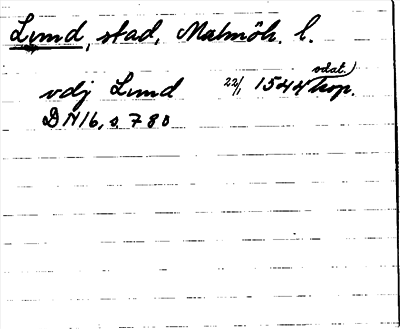 Lund, stad, Malmöh. l.
odat.)
vdj Lund 22/1 1544 kop.
DN16, s. 780